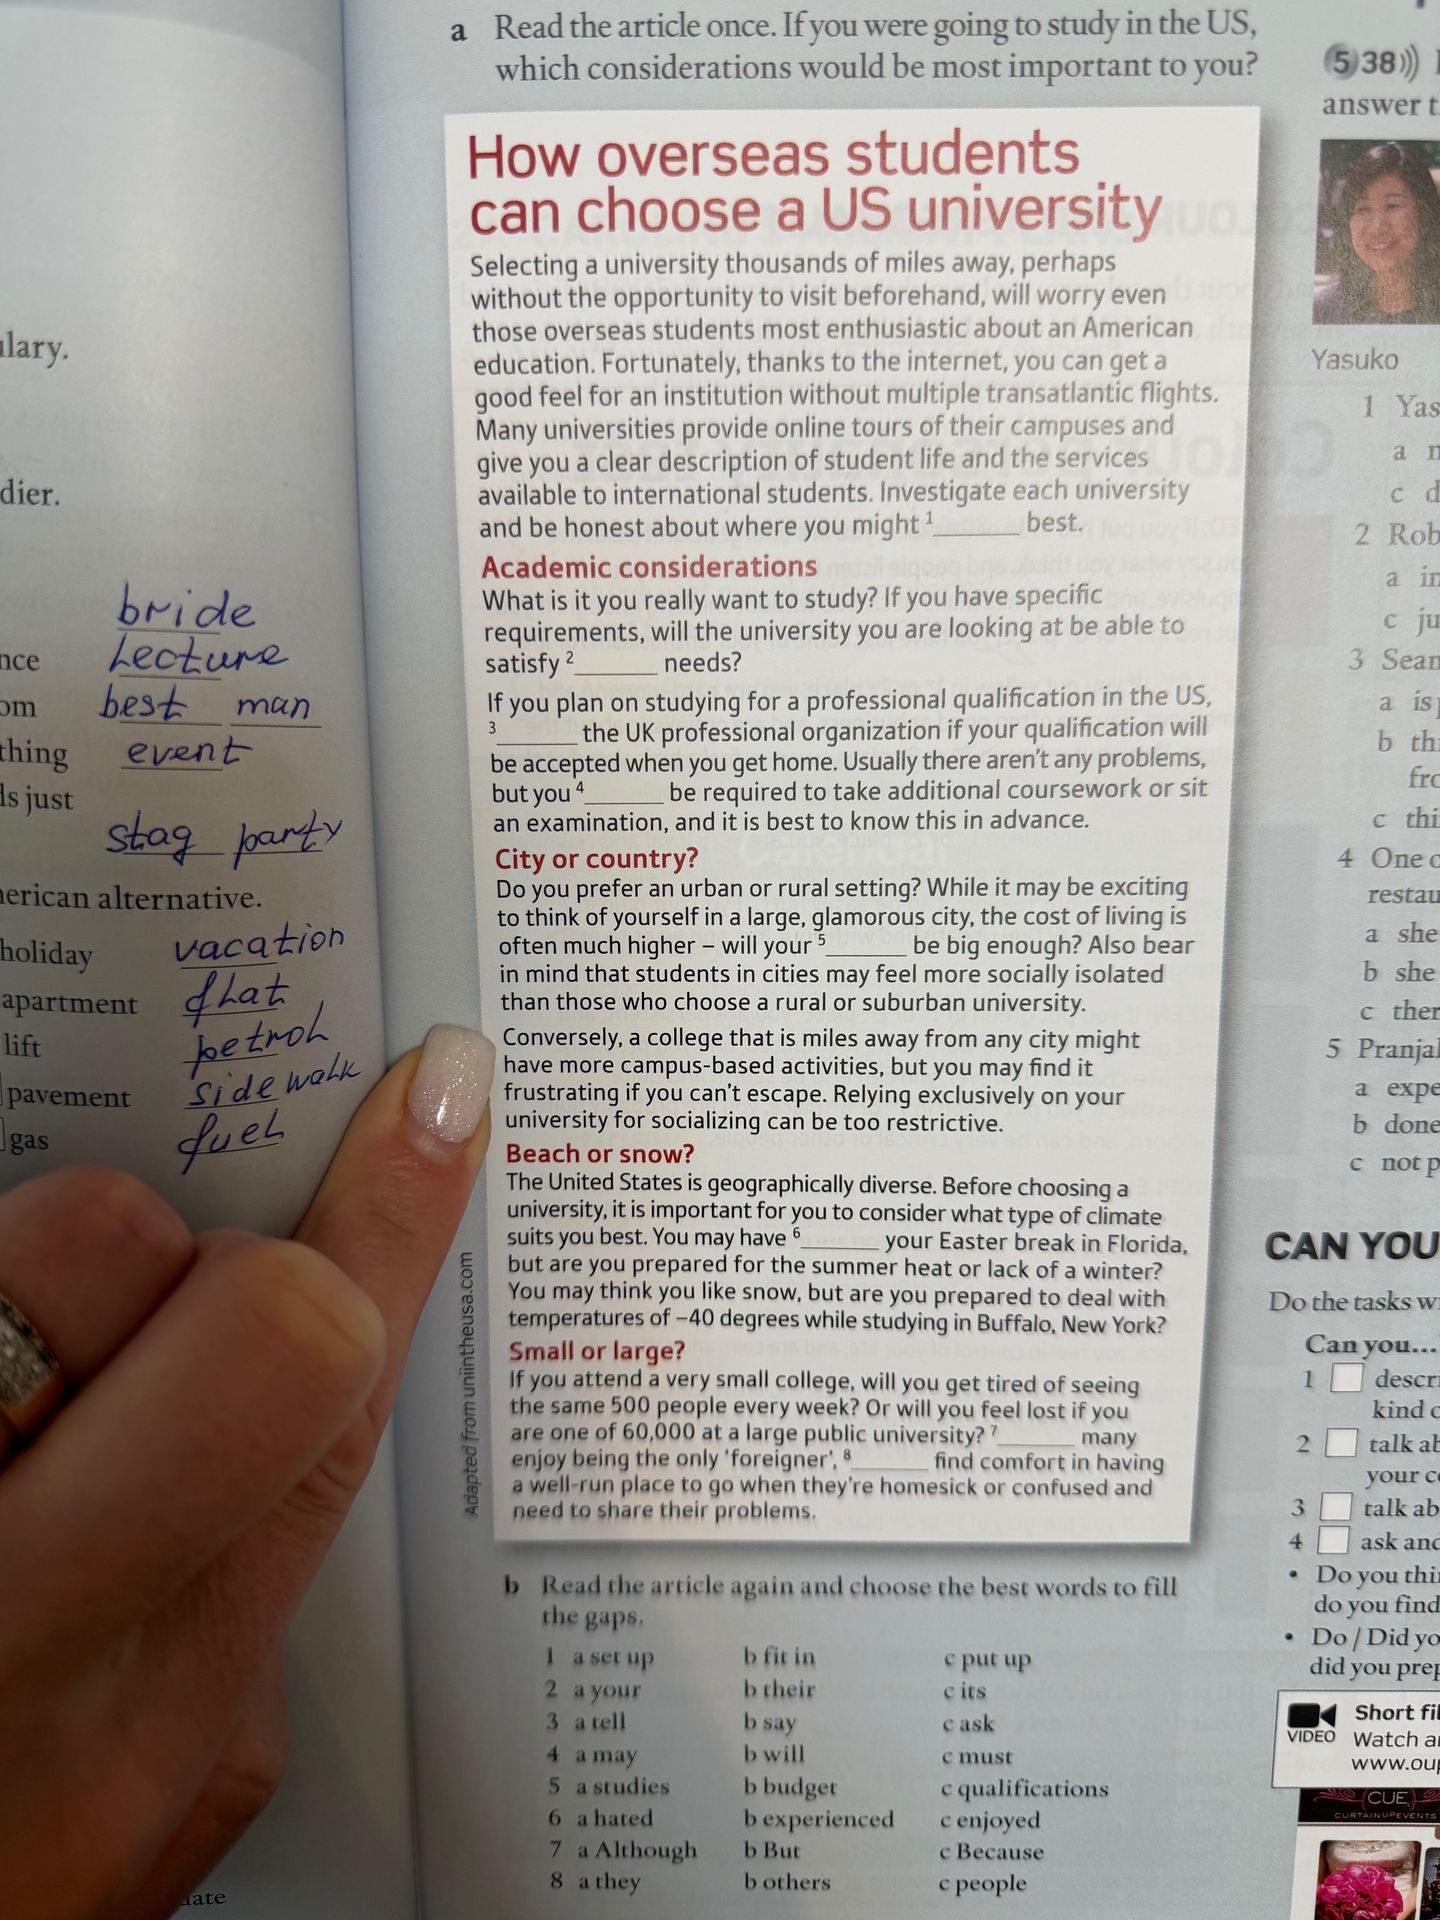 a Read the article once. If you were going to study in the US,
which considerations would be most important to you?
How overseas students
can choose a US university
Selecting a university thousands of miles away, perhaps
without the opportunity to visit beforehand, will worry even
those overseas students most enthusiastic about an American
education. Fortunately, thanks to the internet, you can get a
good feel for an institution without multiple transatlantic flights.
Many universities provide online tours of their campuses and
give you a clear description of student life and the services
available to international students. Investigate each university
and be honest about where you might 1______ best.
Academic considerations
What is it you really want to study? If you have specific
requirements, will the university you are looking at be able to
satisfy 2______ needs?
If you plan on studying for a professional qualification in the US,
3______ the UK professional organization if your qualification will
be accepted when you get home. Usually there aren't any problems,
but you 4______ be required to take additional coursework or sit
an examination, and it is best to know this in advance.
City or country?
Do you prefer an urban or rural setting? While it may be exciting
to think of yourself in a large, glamorous city, the cost of living is
often much higher – will your 5______ be big enough? Also bear
in mind that students in cities may feel more socially isolated
than those who choose a rural or suburban university.
Conversely, a college that is miles away from any city might
have more campus-based activities, but you may find it
frustrating if you can't escape. Relying exclusively on your
university for socializing can be too restrictive.
Beach or snow?
The United States is geographically diverse. Before choosing a
university, it is important for you to consider what type of climate
suits you best. You may have 6______ your Easter break in Florida,
but are you prepared for the summer heat or lack of a winter?
You may think you like snow, but are you prepared to deal with
temperatures of –40 degrees while studying in Buffalo, New York?
Small or large?
If you attend a very small college, will you get tired of seeing
the same 500 people every week? Or will you feel lost if you
are one of 60,000 at a large public university? 7______ many
enjoy being the only 'foreigner', 8______ find comfort in having
a well-run place to go when they're homesick or confused and
need to share their problems.
Adapted from uniintheusa.com
b Read the article again and choose the best words to fill
the gaps.
1 a set up b fit in c put up
2 a your b their c its
3 a tell b say c ask
4 a may b will c must
5 a studies b budget c qualifications
6 a hated b experienced c enjoyed
7 a Although b But c Because
8 a they b others c people
bride
Lecture
best man
thing event
just
stag party
alternative.
holiday vacation
apartment flat
lift petrol
pavement sidewalk
gas fuel
5 38
answer
Yasuko
1
a
c
2
a
c
3 Sean
a is
b
c
4 One
a she
b she
c
5
a
b done
c not
CAN YOU
Do the tasks
Can you...
1
kind
2 talk
your
3 talk
4 ask
• Do you
do you find
• Do / Did
did you
VIDEO
Short
Watch
CUE
CURTAINUPEVENTS